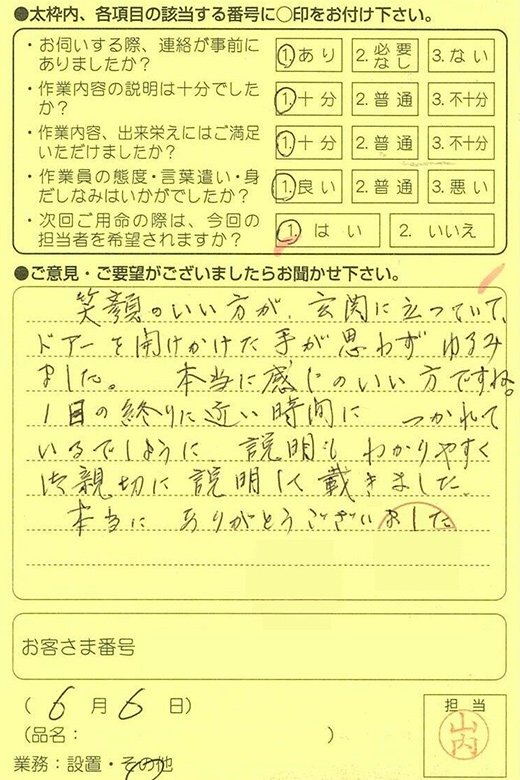 ●太枠内、各項目の該当する番号に〇印をお付け下さい。
・お伺いする際、連絡が事前にありましたか? 1. あり 2. 必要なし 3. ない
・作業内容の説明は十分でしたか? 1. 十分 2. 普通 3. 不十分
・作業内容、出来栄えにはご満足いただけましたか? 1. 十分 2. 普通 3. 不十分
・作業員の態度・言葉遣い・身だしなみはいかがでしたか? 1. 良い 2. 普通 3. 悪い
・次回ご用命の際は、今回の担当者を希望されますか? 1. はい 2. いいえ
●ご意見・ご要望がございましたらお聞かせ下さい。
笑顔のいい方が、玄関に立っていて、
ドアーを開けかけた手が思わずゆるみ
ました。 本当に感じのいい方ですね。
1日の終りに近い時間に つかれて
いるでしように、説明も わかりやすく
御親切に説明して載きました。
本当に ありがとうございました
お客さま番号
(6月6日)
(品名: )
業務:設置・その他
担当
山内